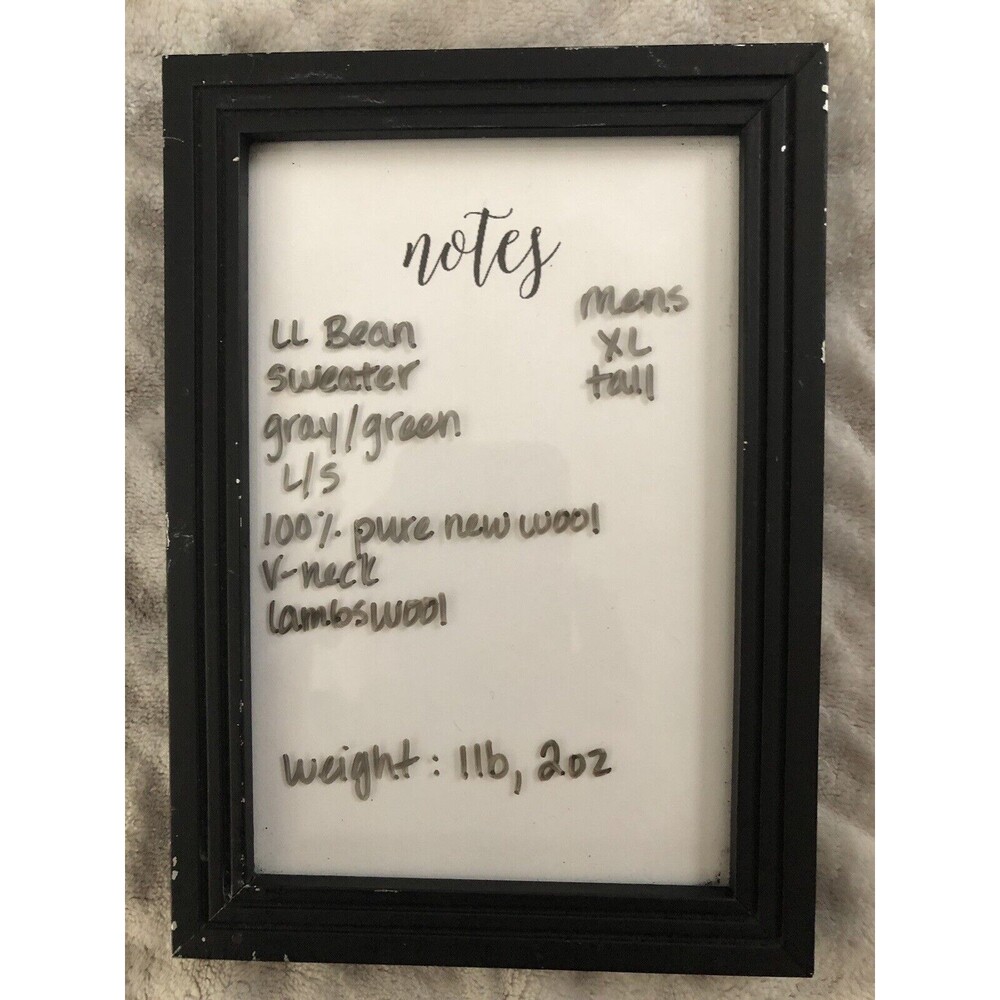 notes
Mens
LL Bean
XL
sweater
tall
gray/green
L/S
100% pure new wool
V-neck
lambswool
weight: 1lb, 2oz